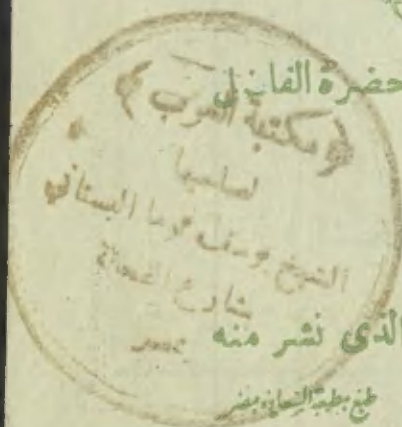 حضرة الفاضل
﴿ مكتبة العرب ﴾
لصاحبها
الشيخ يوسف توما البستاني
بشارع الفجالة
بمصر
الذى نشر منه
طبع بمطبعة السعادة بمصر